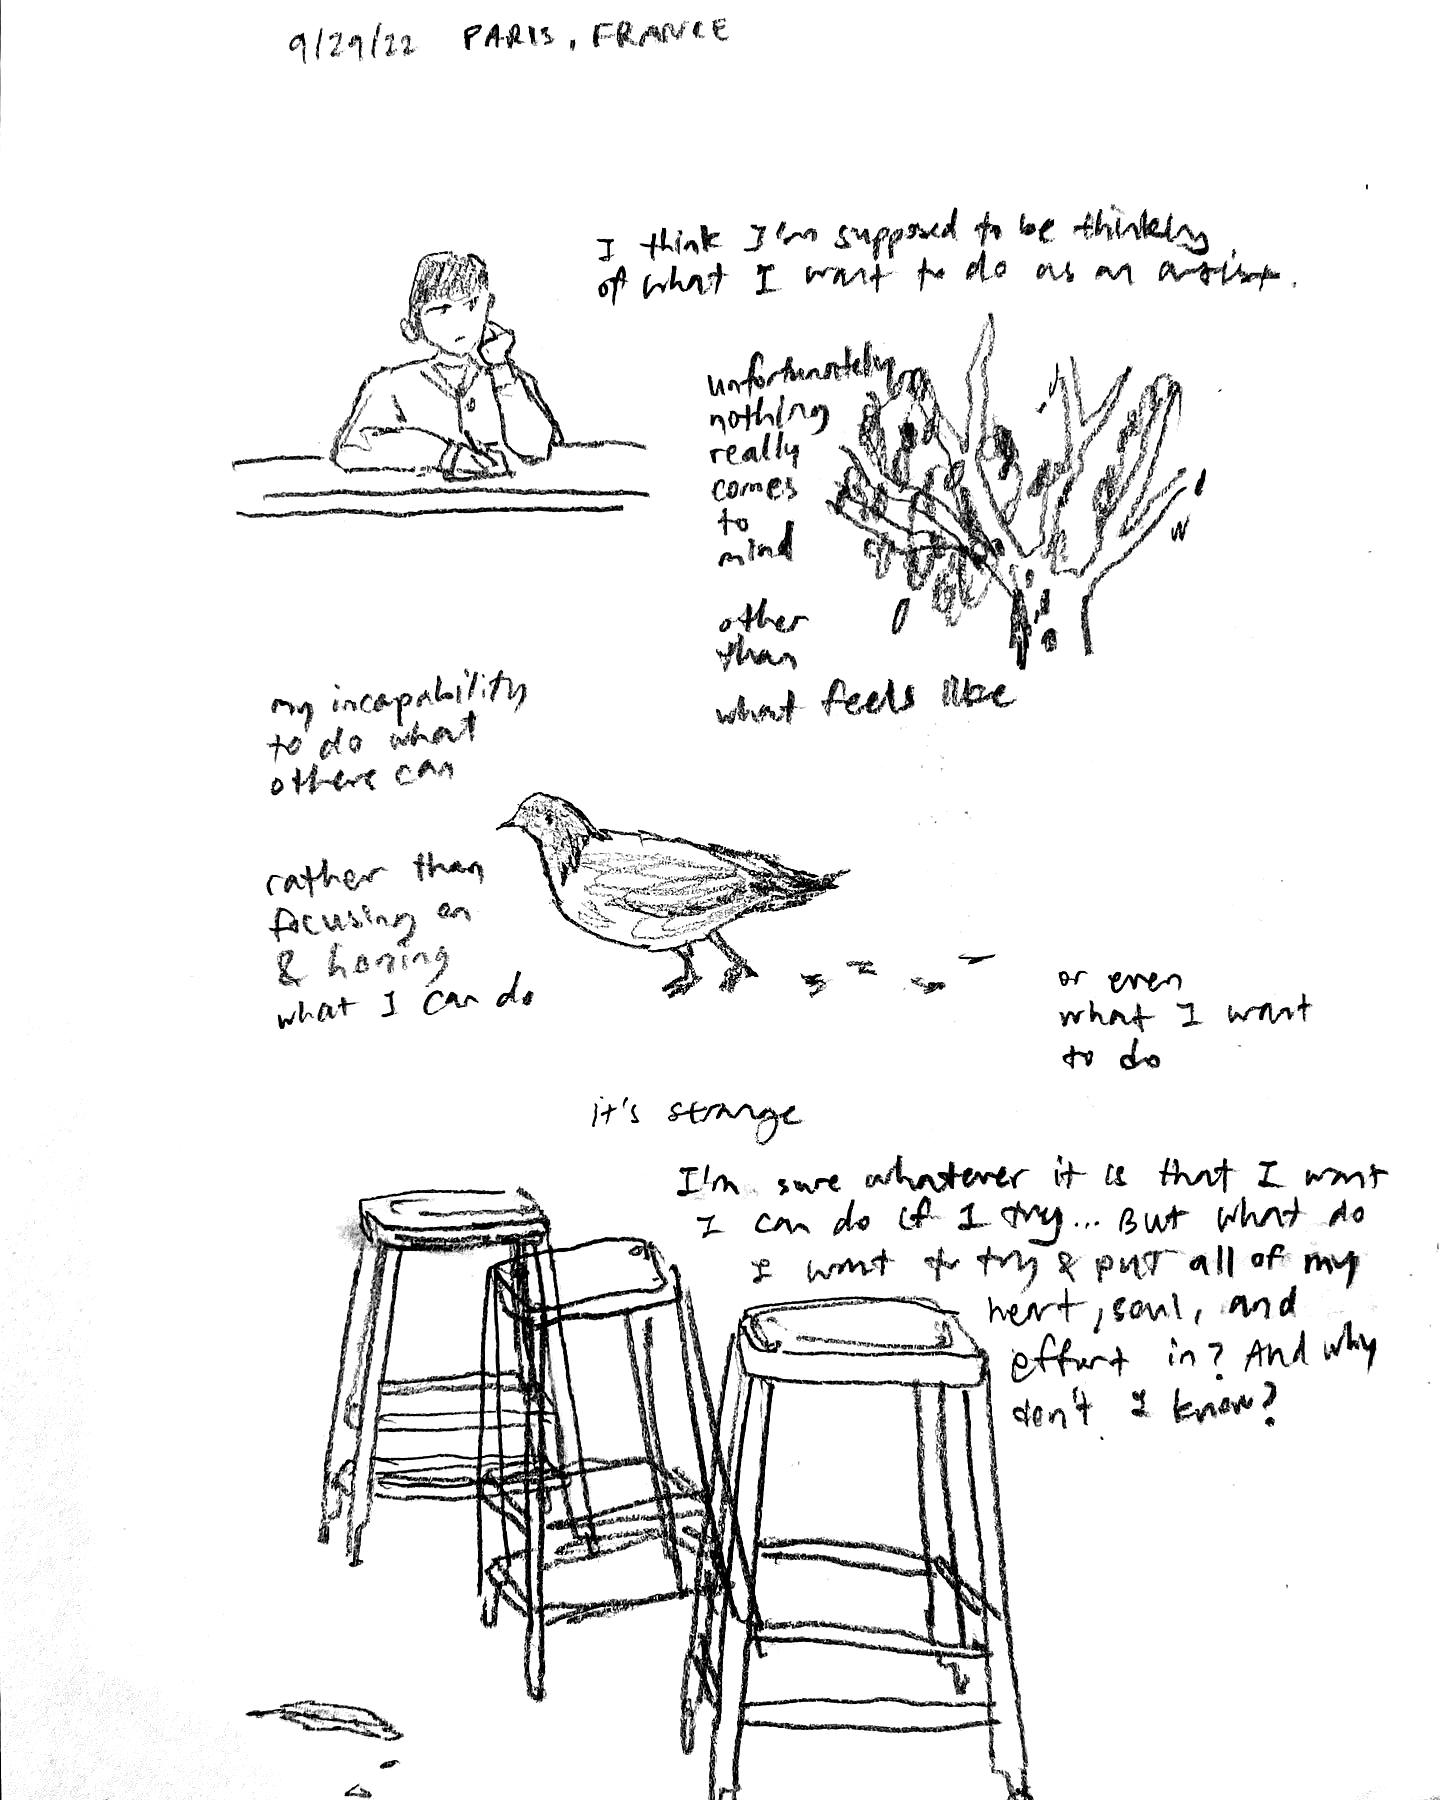 9/29/22 PARIS, FRANCE
I think I'm supposed to be thinking
of what I want to do as an artist.
unfortunately
nothing
really
comes
to
mind
other
than
what feels like
my incapability
to do what
others can
rather than
focusing on
& honing
what I can do
or even
what I want
to do
it's strange
I'm sure whatever it is that I want
I can do if I try... But what do
I want to try & put all of my
heart, soul, and
effort in? And why
don't I know?